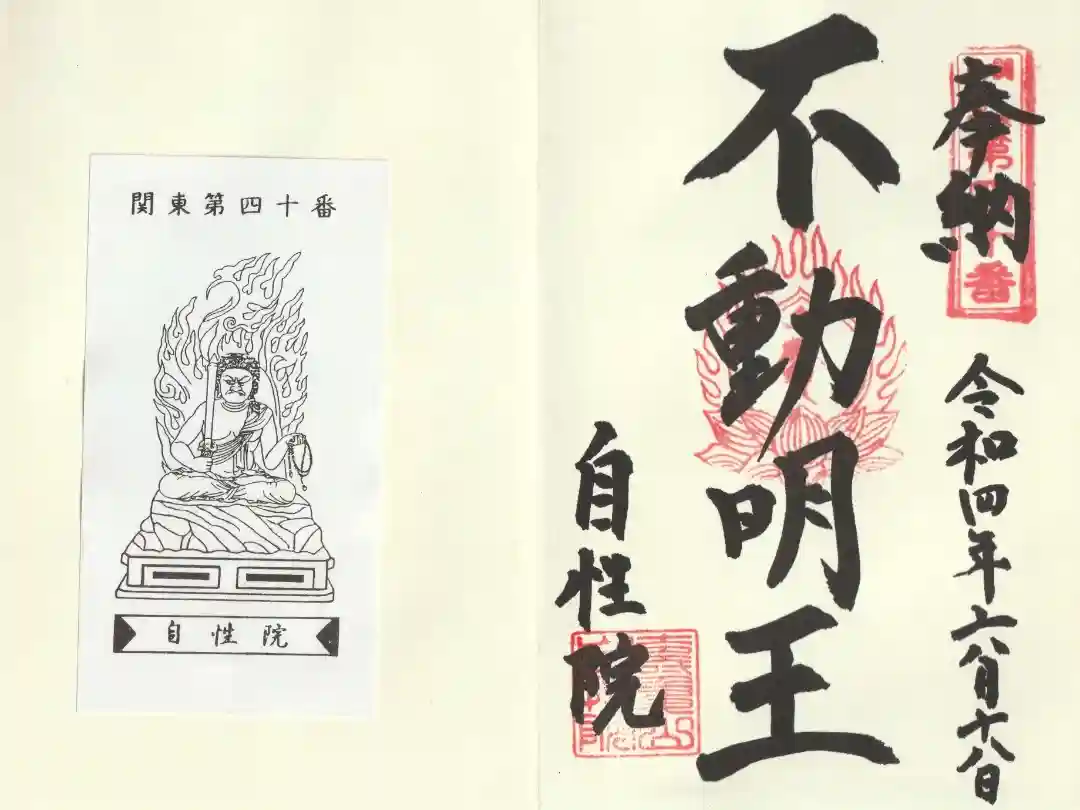 関東第四十番
自性院
奉納
令和四年六月十八日
不動明王
自性院